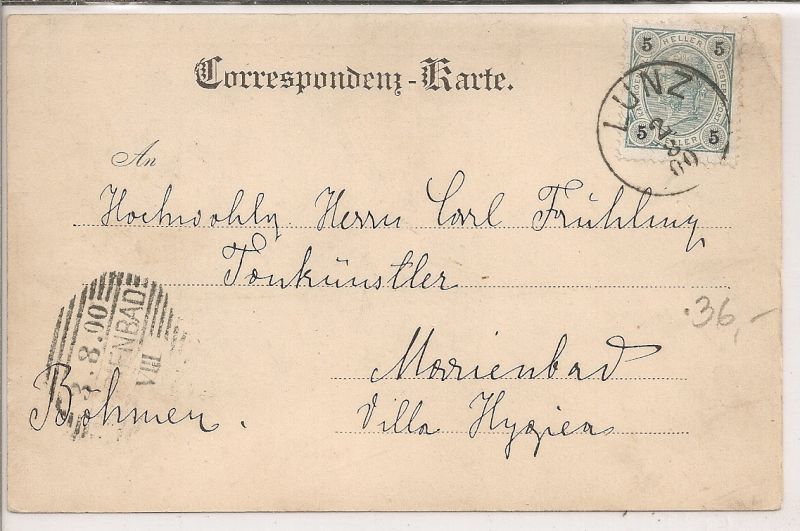 Correspondenz-Karte.
5 HELLER 5
LUNZ
2 8 00
5 HELLER 5
An
Hochwohlg Herrn Carl Frühling
Tonkünstler
.36,-
3.8.00
ENBAD
VIII
Marienbad
Böhmen.
Villa Hygiea